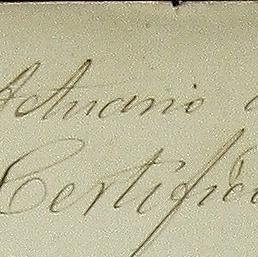 Actuario
Certific